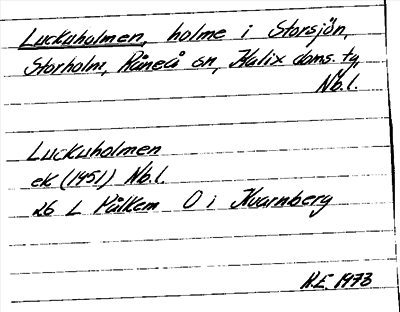 Luckuholmen, holme i Storsjön,
Storholm, Råneå sn, Kalix doms. tg,
Nb.l.
Luckuholmen
ek (1951) Nb.l.
26 L Pålkem O i Kvarnberg
H.E. 1973